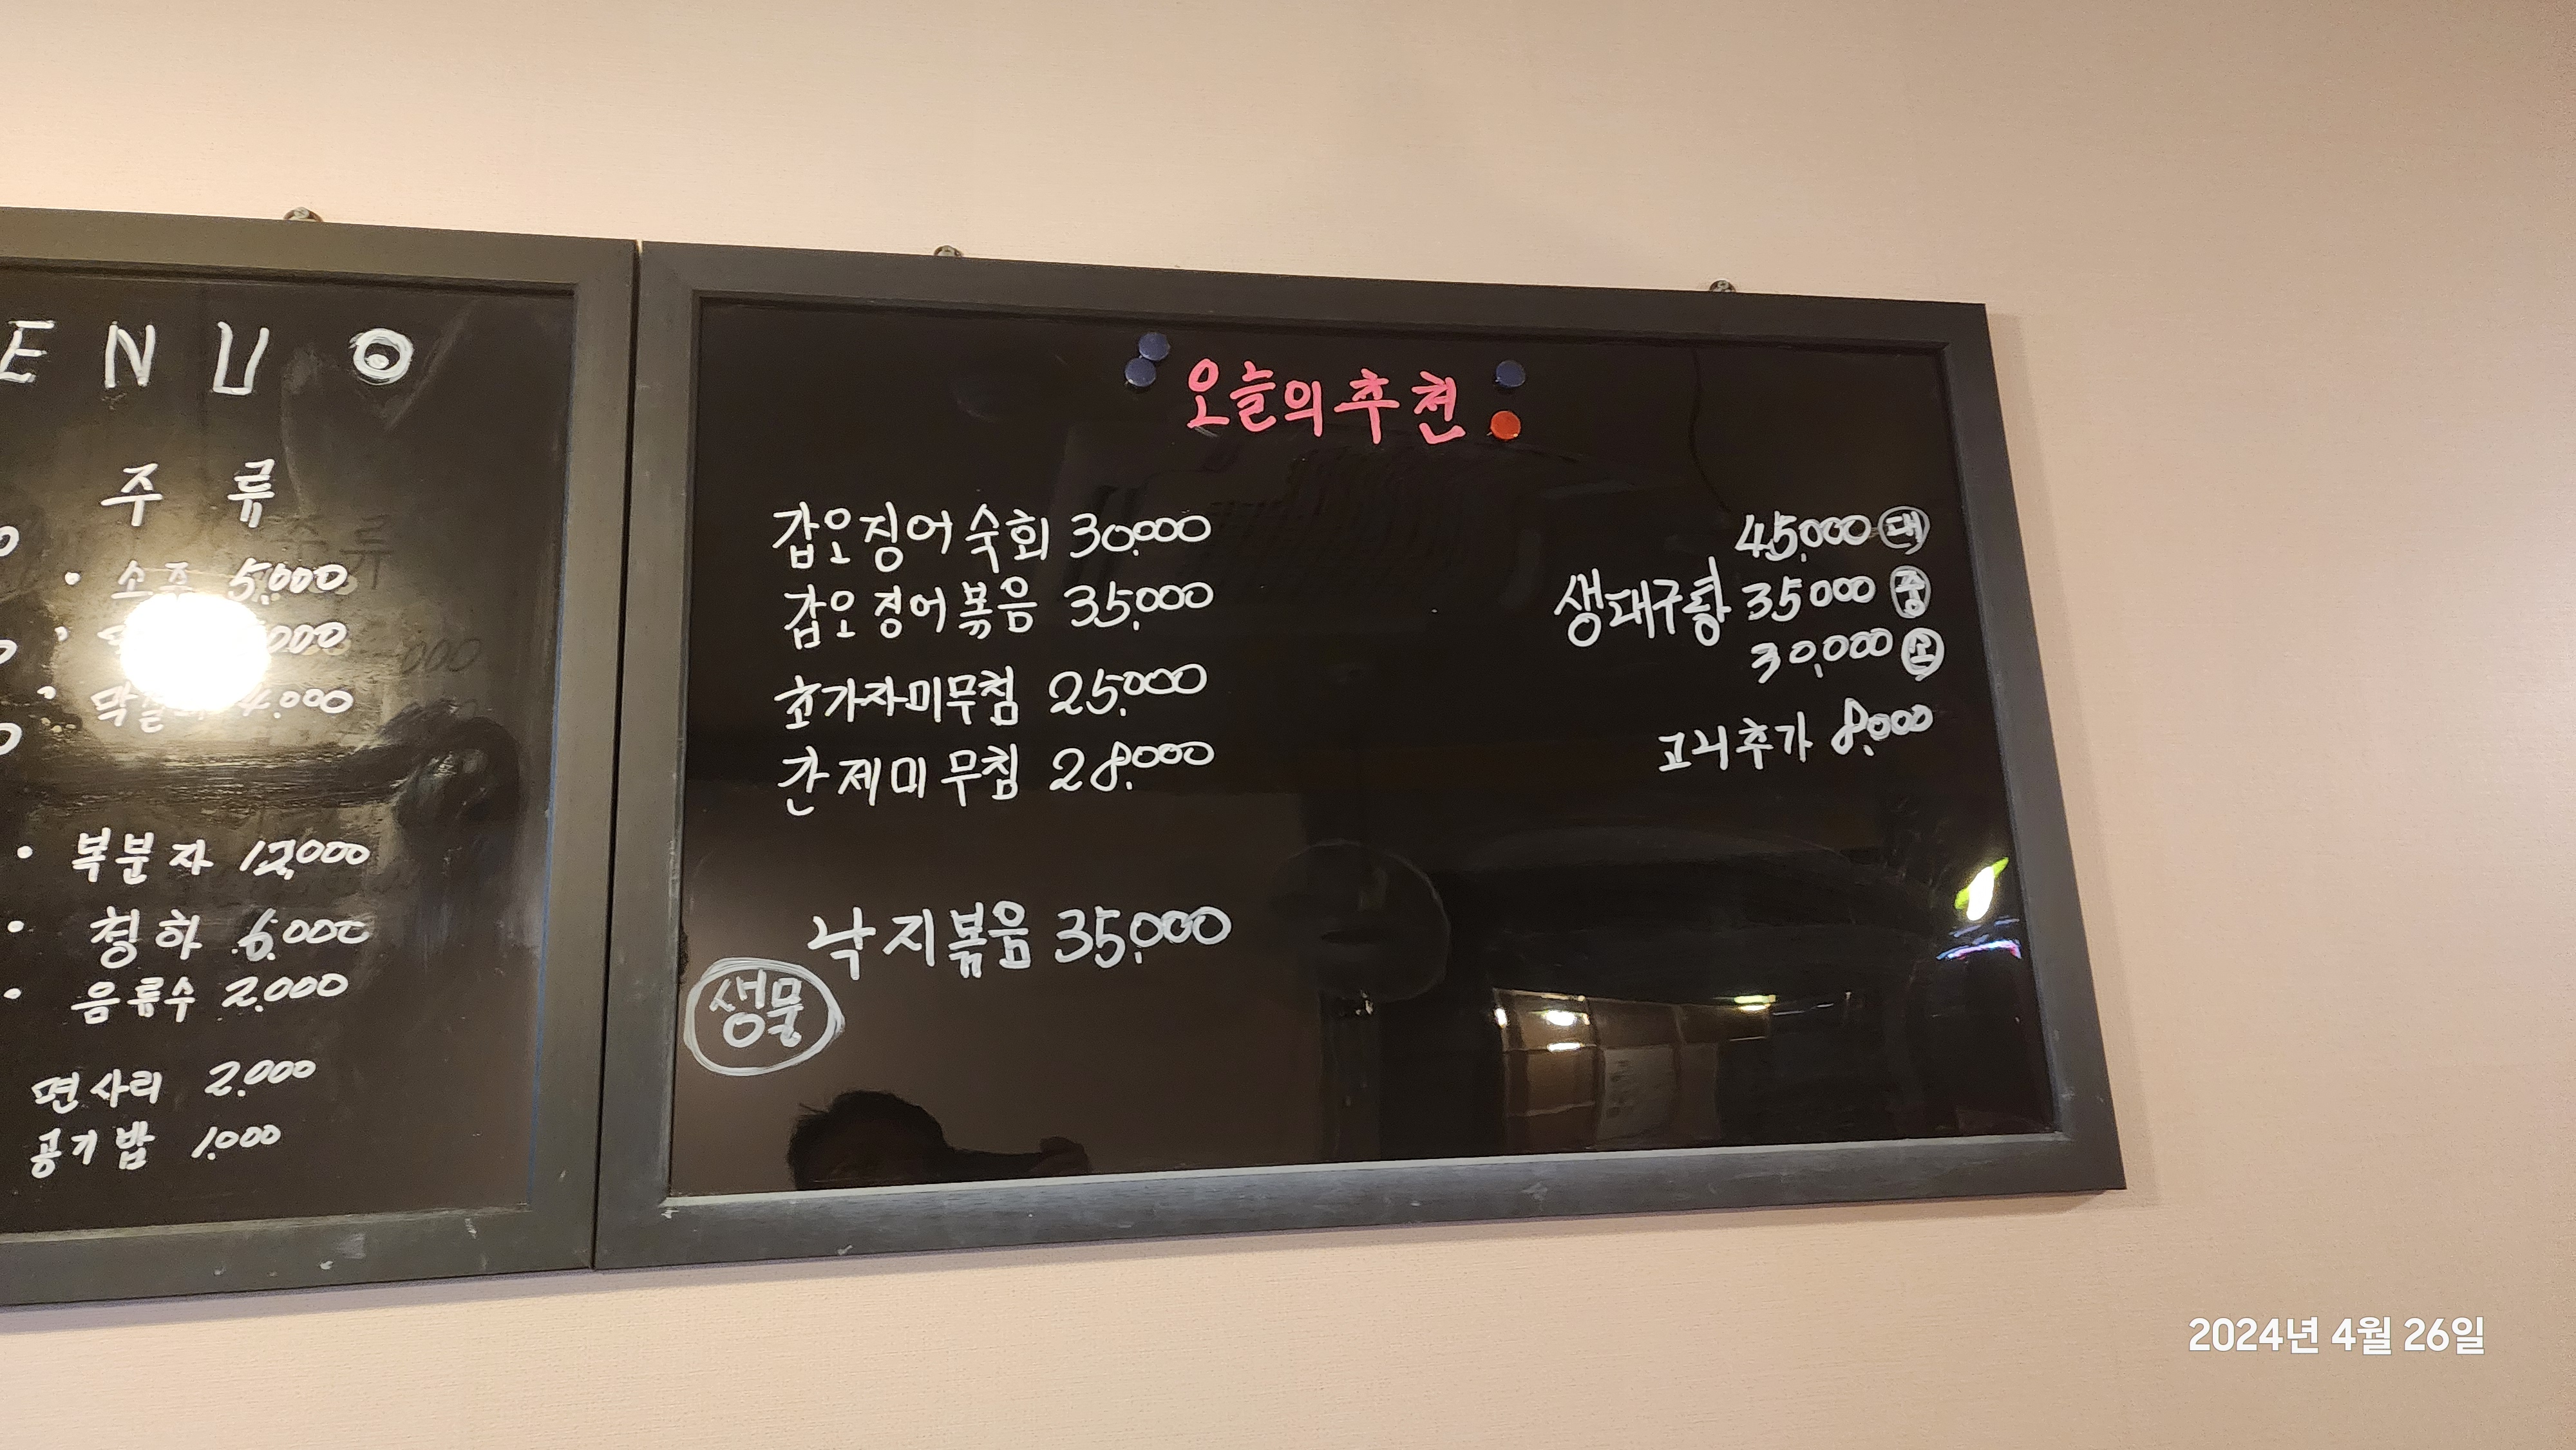 ENU
주류
소주 5,000
000
4,000
복분자 12,000
청하 6,000
음류수 2,000
면사리 2,000
공기밥 1,000
오늘의추천
갑오징어숙회 30,000
갑오징어볶음 35,000
호가자미무침 25,000
간제미무침 28,000
낙지볶음 35,000
생물
45,000 대
생대구탕 35000 중
30,000 소
고니추가 8,000
2024년 4월 26일